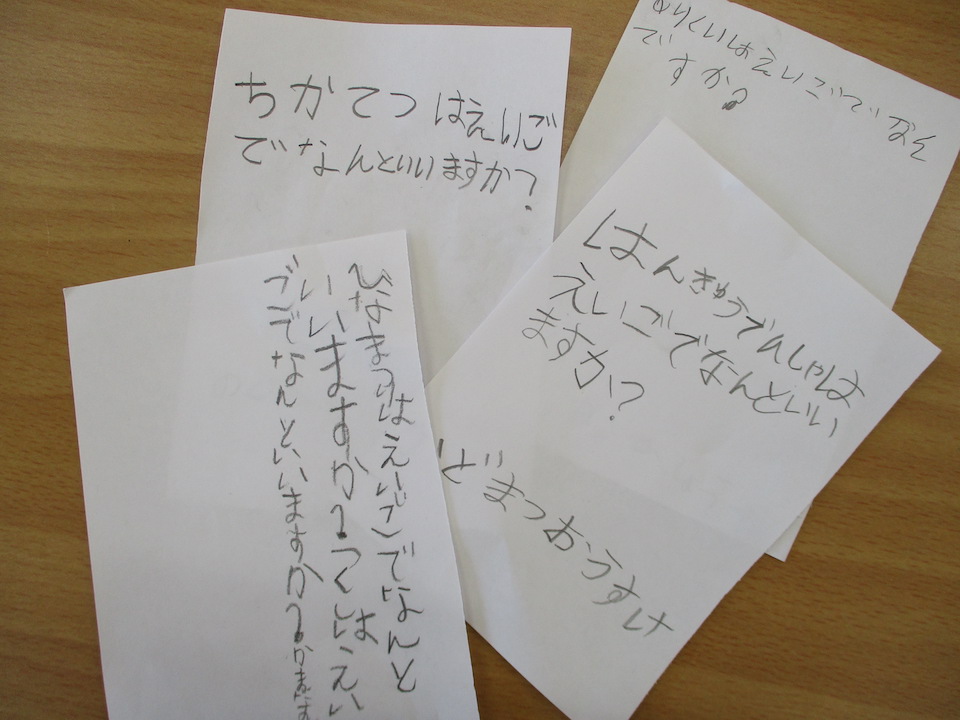 ちかてつはえいご
でなんといいますか?
りくいはえいごでなん
ですか?
はんきゅうでんしゃは
えいごでなんといい
ますか?
どまつおうすけ
ひなまつりはえいごでなんと
いいますか?つくしはえい
ごでなんといいますか?